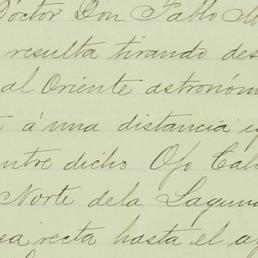 Doctor Don Pablo
resulta tirando des
al Oriente astronóm
á una distancia
entre dicho Ojo Cal
Norte dela Laguna
recta hasta el